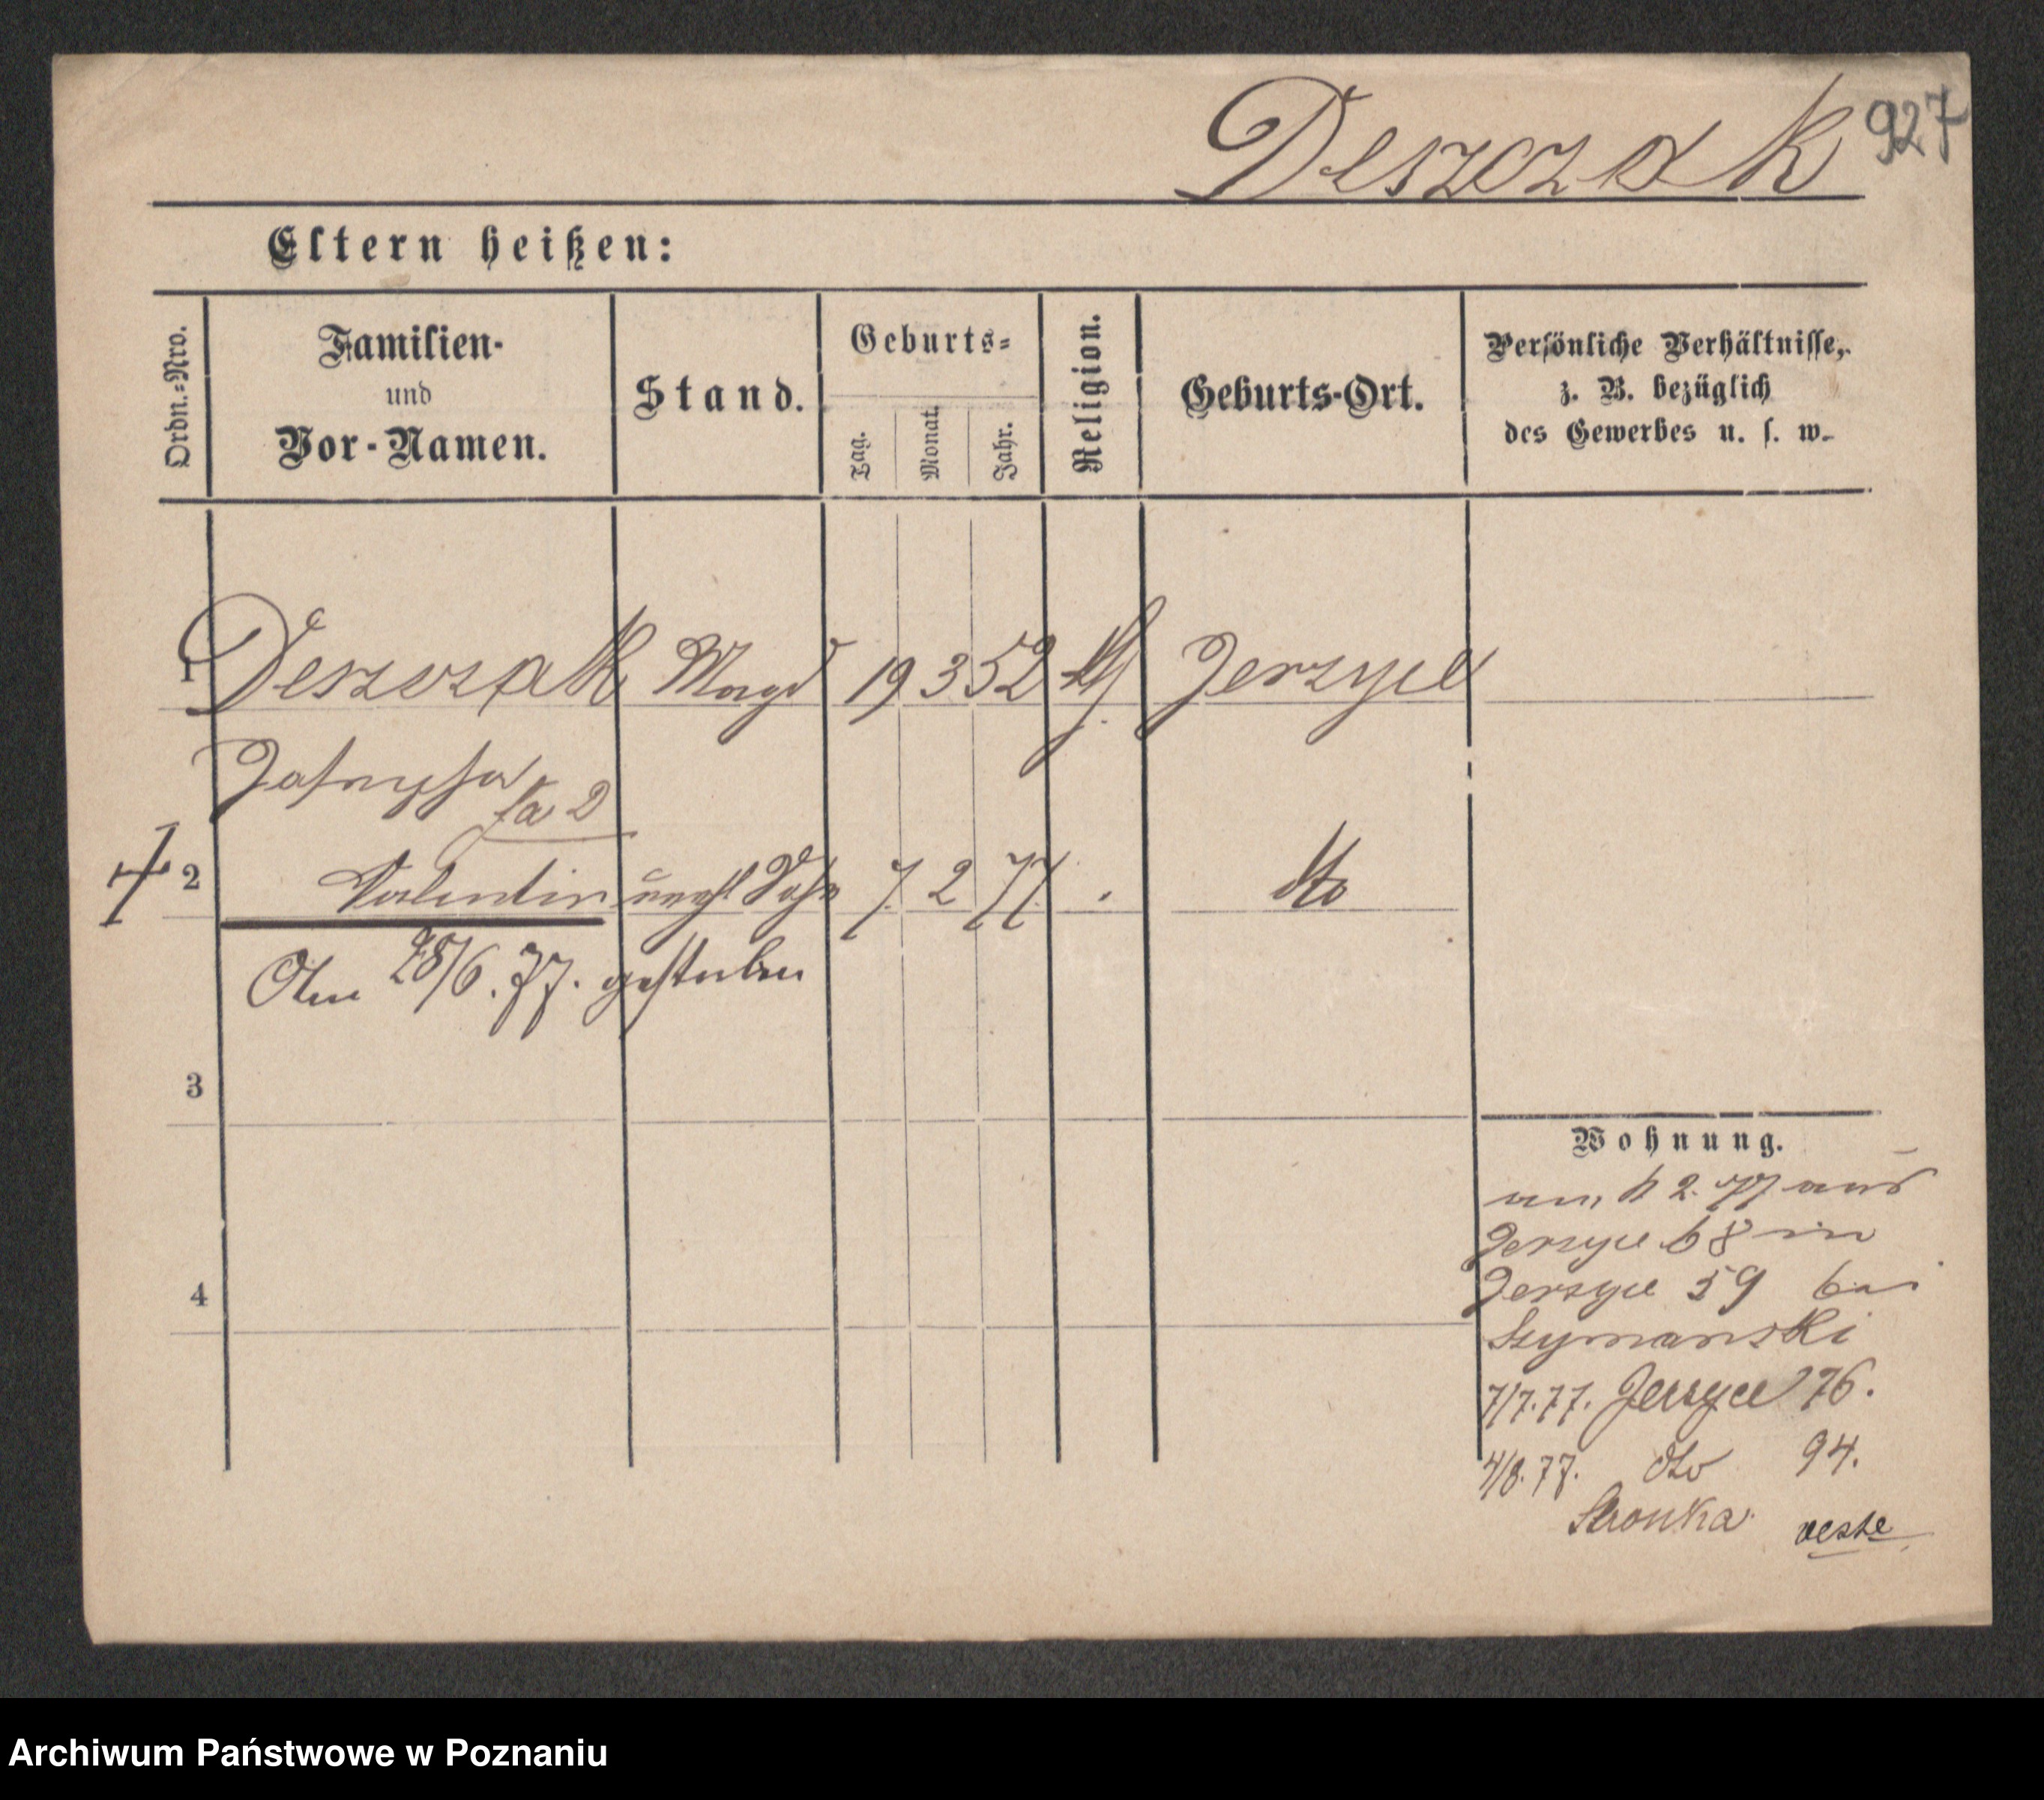 Deszczak 927
Eltern heißen:
Ordn.-Nro.
Familien-
und
Vor-Namen.
Stand.
Geburts-
Tag.
Monat.
Jahr.
Religion.
Geburts-Ort.
Persönliche Verhältnisse,
z. B. bezüglich
des Gewerbes u. s. w.
1 Deszczak Magd 19 3 52 Jerzyce
Josepha
2 Valentin unehl Sohn 7 2 77 dto
Am 28/6. 77. gestorben
3
4
Wohnung.
am 2. 77 aus
Jerzyce 68 in
Jerzyce 59 bei
Szymanski
7/7. 77. Jerzyce 76.
4/8. 77. dto 94.
Skonka
Archiwum Państwowe w Poznaniu